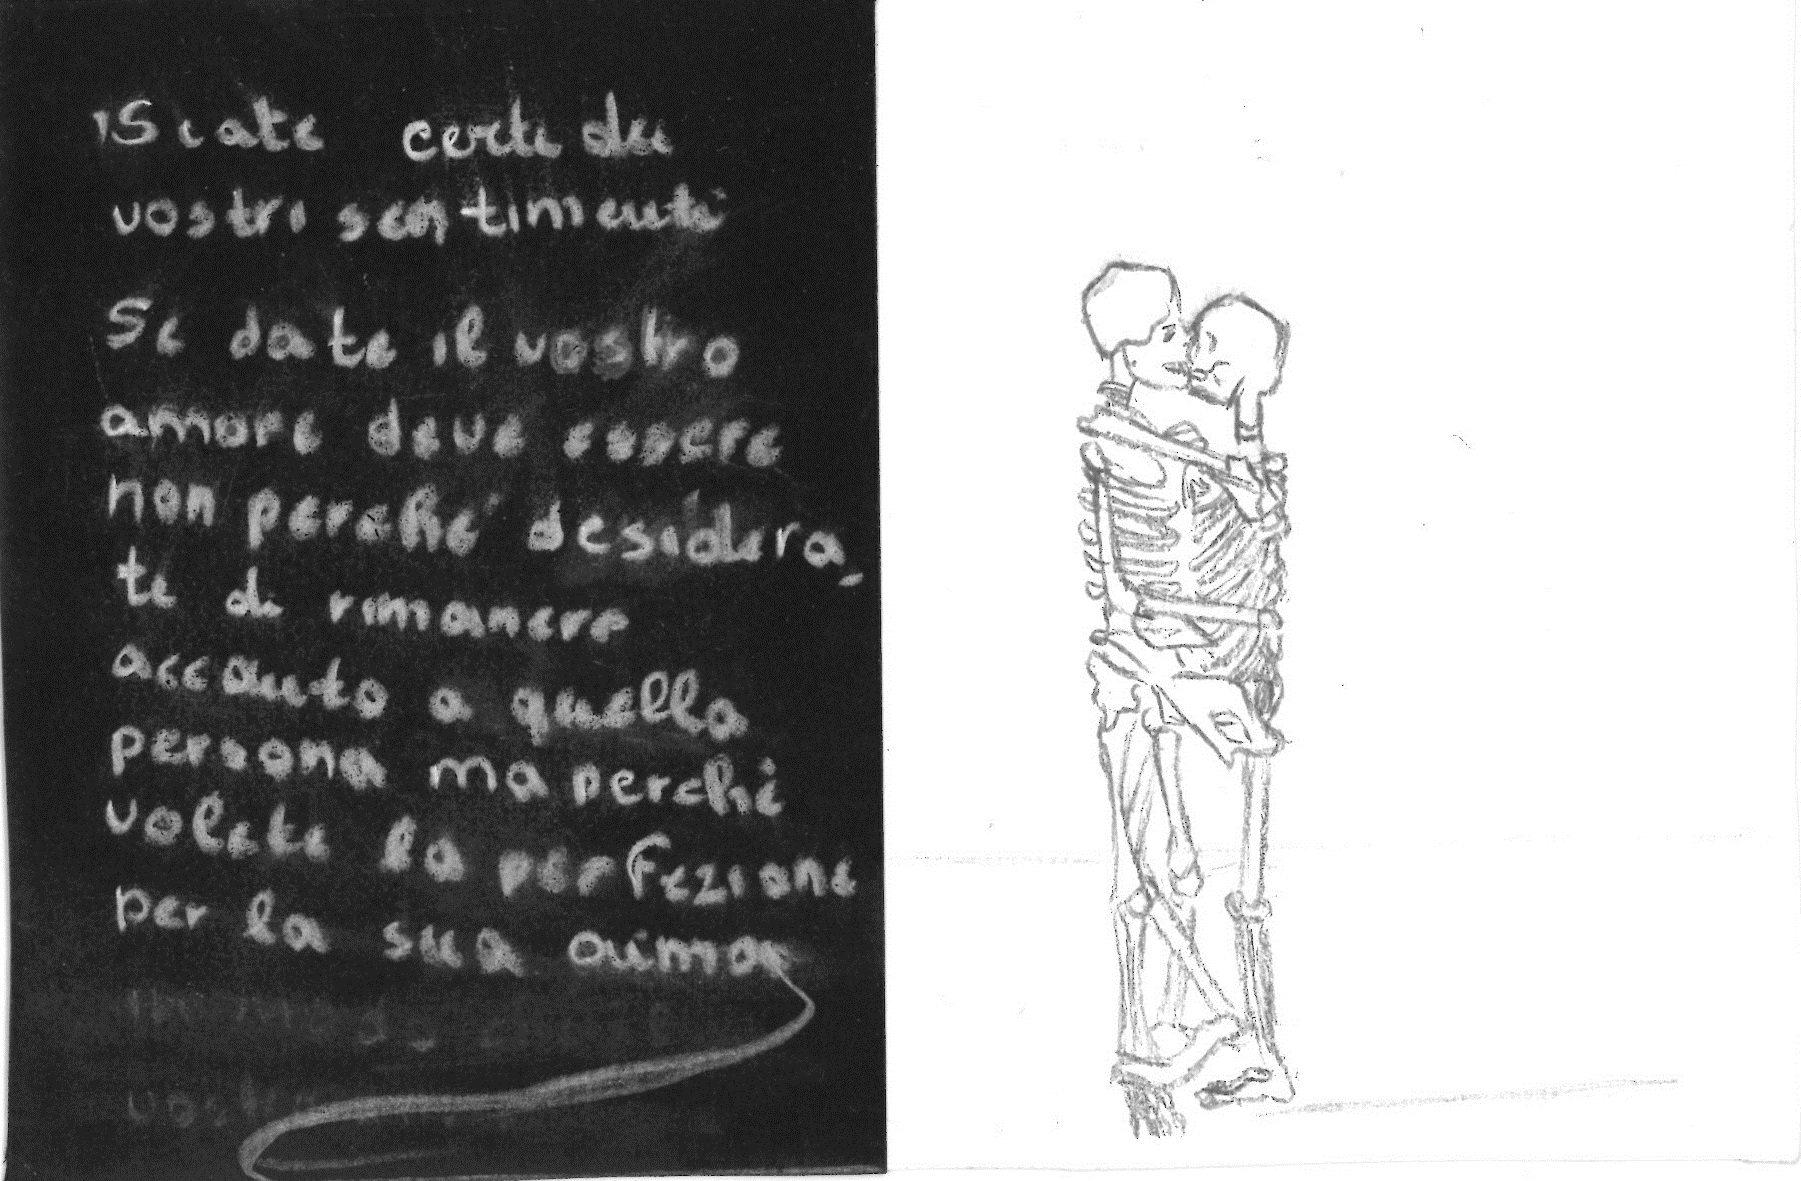 Siate certi dei
vostri sentimenti
Se date il vostro
amore deve essere
non perché desidera-
te di rimanere
accanto a quella
persona ma perché
volete la perfezione
per la sua anima